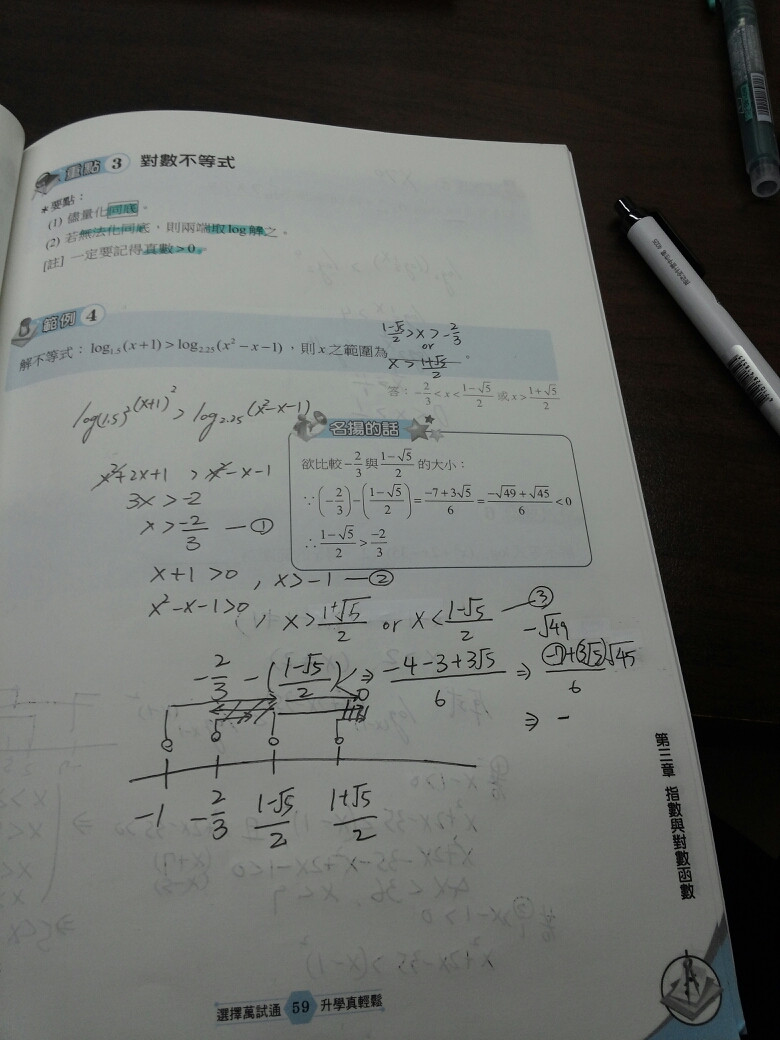 重點 3 對數不等式
＊要點：
(1) 儘量化同底。
(2) 若無法化同底，則兩端取log解之。
[註] 一定要記得真數>0。
範例 4
解不等式：log₁.₅(x+1)>log₂.₂₅(x²−x−1)，則x之範圍為 (1−√5)/2 > x > −2/3
or
x > (1+√5)/2 。
答：−2/3<x<(1−√5)/2 或 x>(1+√5)/2
log(1.5)² (x+1)² > log₂.₂₅ (x²−x−1)
x²+2x+1 > x²−x−1
3x > −2
x > −2/3 — ①
名揚的話
欲比較−2/3與(1−√5)/2的大小：
∵(−2/3)−((1−√5)/2)=(−7+3√5)/6=(−√49+√45)/6<0
∴(1−√5)/2>−2/3
x+1 >0 , x>−1 — ②
x²−x−1>0 , x>(1+√5)/2 or x<(1−√5)/2 — ③
−√49
−2/3 − ((1−√5)/2) ⇒ (−4−3+3√5)/6 ⇒ (−7+(3√5))/6 √45
⇒ −
−1 −2/3 (1−√5)/2 (1+√5)/2
第三章 指數與對數函數
選擇萬試通 59 升學真輕鬆